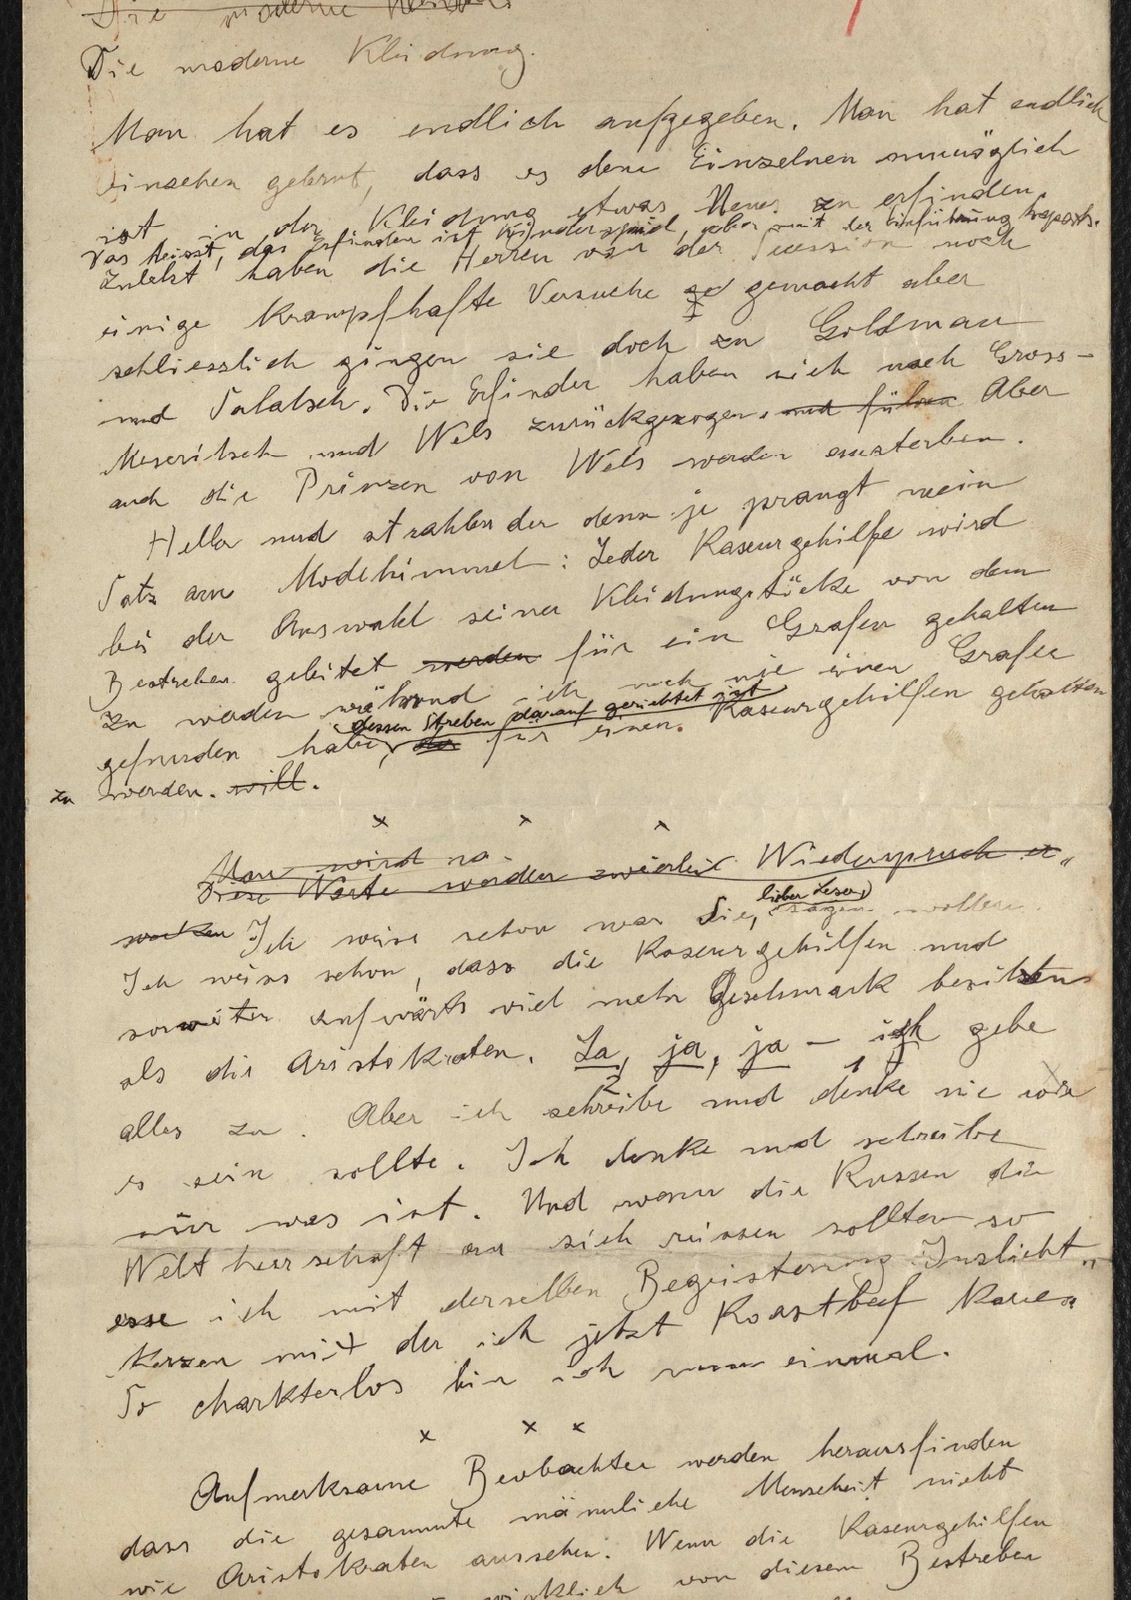 Die moderne
Die moderne Kleidung.
Man hat es endlich aufgegeben. Man hat endlich
einsehen gelernt, dass es dem Einzelnen unmöglich
ist in der Kleidung etwas Neues zu erfinden.
Das heisst, das Erfinden ist Kinderspiel, aber mit der Einführung haperts.
Zuletzt haben die Herren von der Secession noch
einige krampfhafte Versuche gemacht aber
schliesslich gingen sie doch zu Goldman
und Salatsch. Die Erfinder haben sich nach Gross-
Meseritsch und Wels zurückgezogen. und führen Aber
auch die Prinzen von Wels werden aussterben.
Heller und strahlender denn je prangt mein
Satz am Modehimmel: Jeder Raseurgehilfe wird
bei der Auswahl seiner Kleidungstücke von dem
Bestreben geleitet werden für ein Grafen gehalten
zu werden während ich noch nie einen Grafen
dessen Streben darauf gerichtet ist
gefunden habe, der für einen Raseurgehilfen gehalten
zu werden. will.
x x x
Man wird na
Diese Worte werden Wiederspruch er-
wecken Ich weiss schon was Sie, lieber Leser, sagen wollen.
Ich weiss schon, dass die Raseurgehilfen und
soweiter aufwärts viel mehr Geschmack besitzen
als die Aristokraten. Ja, ja, ja – ich gebe
alles zu. Aber ich schreibe und denke nie wie
2 1
es sein sollte. Ich denke und schreibe
nur was ist. Und wenn die Russen die
Weltherrschaft an sich reissen sollten so
esse ich mit derselben Begeisterung Inslicht-
kerzen mit der ich jetzt Roastbeef kaue.
So charkterlos bin ich nun einmal.
x x x
Aufmerksame Beobachter werden herausfinden
dass die gesammte männliche Menscheit nicht
wie Aristokraten aussehen. Wenn die Raseurgehilfen
wirklich von diesem Bestreben